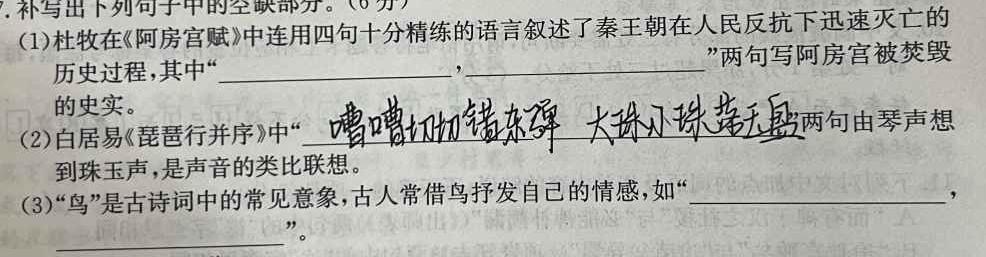 7.补写出下列句子中的空缺部分。(6分)
(1)杜牧在《阿房宫赋》中连用四句十分精练的语言叙述了秦王朝在人民反抗下迅速灭亡的
历史过程,其中“____________,____________”两句写阿房宫被焚毁
的史实。
(2)白居易《琵琶行并序》中“嘈嘈切切错杂弹 大珠小珠落玉盘两句由琴声想
到珠玉声,是声音的类比联想。
(3)“鸟”是古诗词中的常见意象,古人常借鸟抒发自己的情感,如“____________,
____________”。